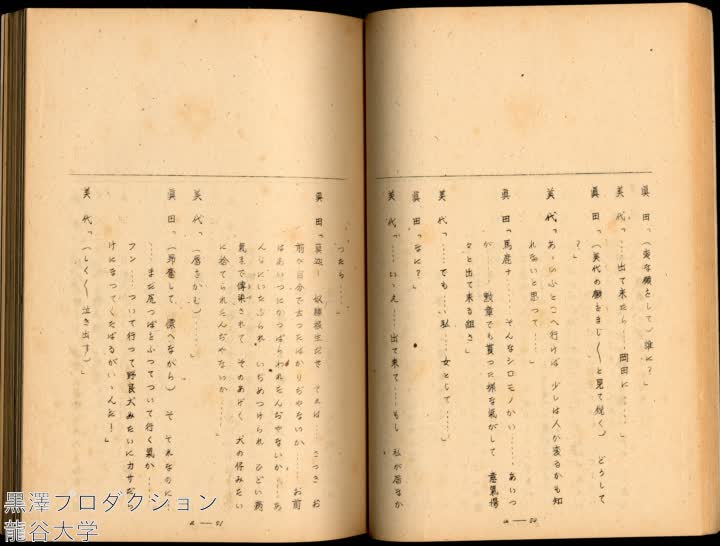 眞田「(変な顔をして)誰に?」
美代「……出て来たら……岡田に……」
眞田「(美代の顔をまじ〳〵と見て鋭く)どうして
?」
美代「あゝいふとこへ行けば 少しは人が変るかも知
れないと思つて……」
眞田「馬鹿な……そんなシロモノかい……あいつ
が……勲章でも貰つた様な気がして 意気揚
々と出て来る組さ」
美代「……でも……私……女として……」
眞田「なに?」
美代「……いゝえ……出て来て……もし 私が居なか
つたら……」
眞田「 奴隷根性だぜ それは……さつき お
前が自分で云つたばかりぢやないか……お前
はあいつにかつぱらわれたんぢやないか……あ
んなにいたぶられ いぢめつけられ ひどい病
気まで傳染されて そのあげく 犬の仔みたい
に捨てられたんぢやないか……」
美代「(唇をかむ)……」
眞田「(昂奮して 慄へながら)そ それなのに
……まだ尻つぽをふつてついて行く気か……
フン……ついて行つて野良犬みたいにカサだら
けになつてくたばるがいゝんだ!」
美代「(しく〳〵泣き出す)」
a—50
a—51
黒澤プロダクション
龍谷大学